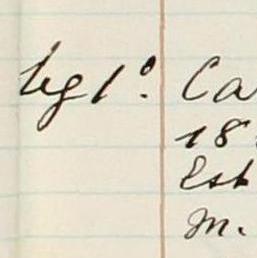 leg 1º. Ca
18
Est
M.